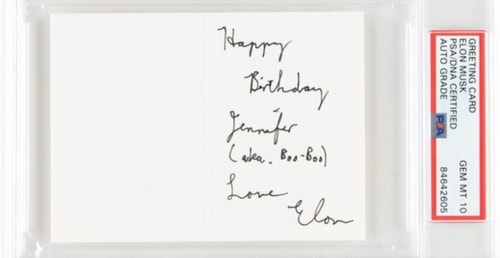 Happy
Birthday
Jennifer
(aka. Boo-Boo)
Love
Elon
GREETING CARD
ELON MUSK
PSA/DNA CERTIFIED
AUTO GRADE
PSA
GEM MT 10
84642605